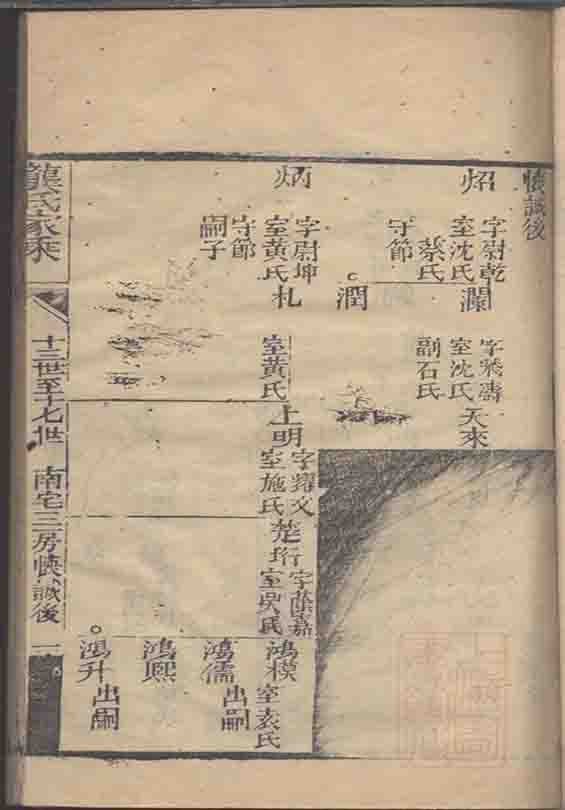 懐誠後
炤
字尉乾
室沈氏
蔡氏
守節
瀾
字飛濤
室沈氏
副石氏
天來
潤
炳
字尉坤
室黄氏
守節
嗣子
札
室黄氏
上明
字耀文
室施氏
楚珩
字蔭嘉
室吳氏
鴻模
室袁氏
鴻儒
出嗣
鴻熙
鴻升
出嗣
龔氏家乘
十三世至十七世 南宅三房懐誠後